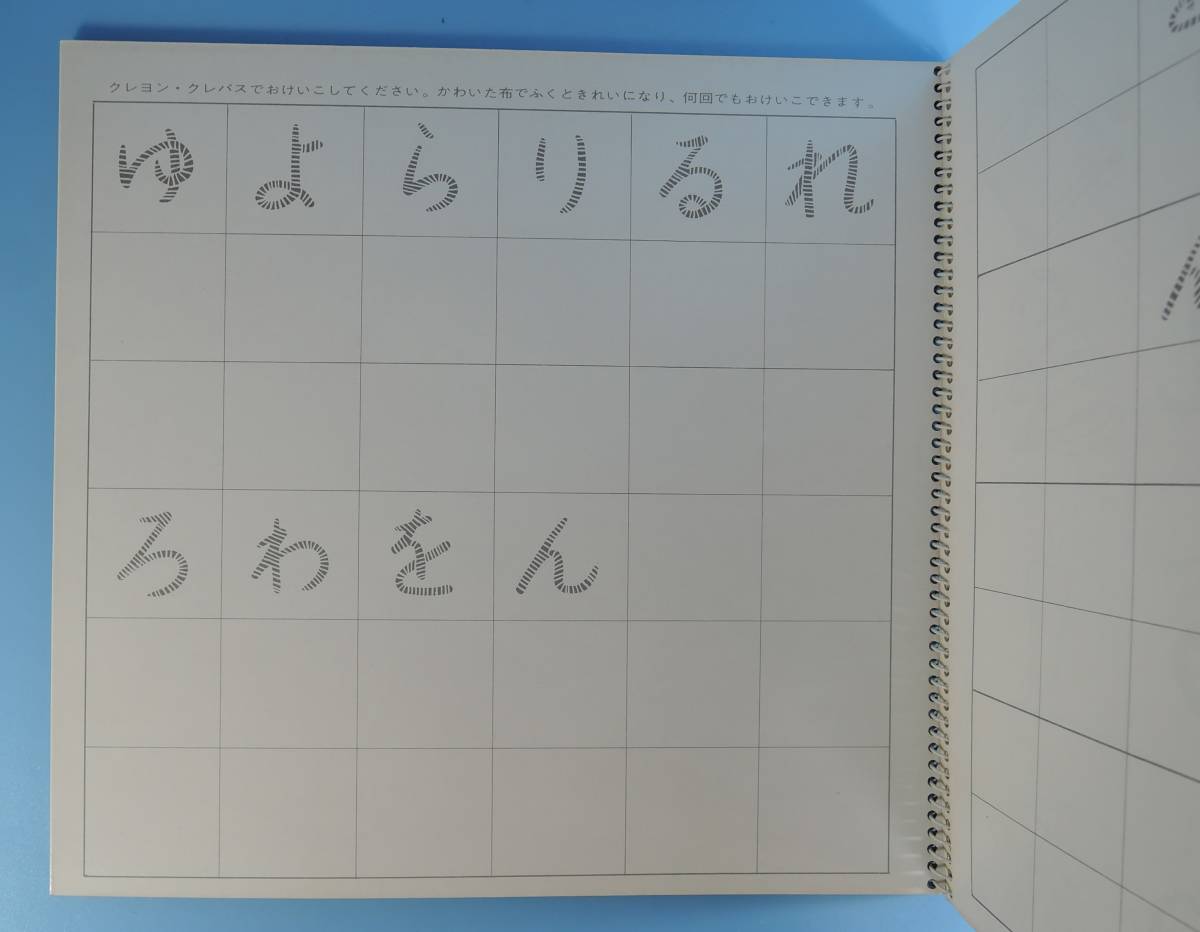 クレヨン・クレパスでおけいこしてください。かわいた布でふくときれいになり、何回でもおけいこできます。
ゆよらりるれ
ろわをん